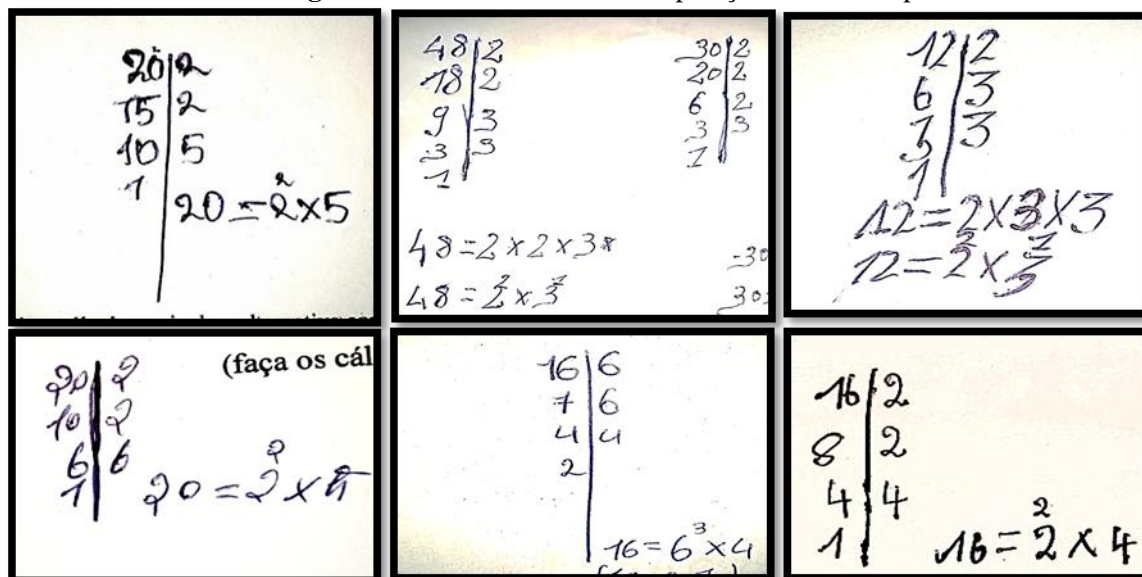 20|2
15|2
10|5
1
20=2²x5
48|2
18|2
9|3
3|3
1
30|2
20|2
6|2
3|3
1
48=2x2x3x
48=2²x3¹
-30
30
12|2
6|3
3|3
1
12=2x3x3
12=2²x3¹
(faça os cál
20|2
10|2
6|6
1
20=2²x
16|6
7|6
4|4
2
16=6³x4
16|2
8|2
4|4
1
16=2²x4